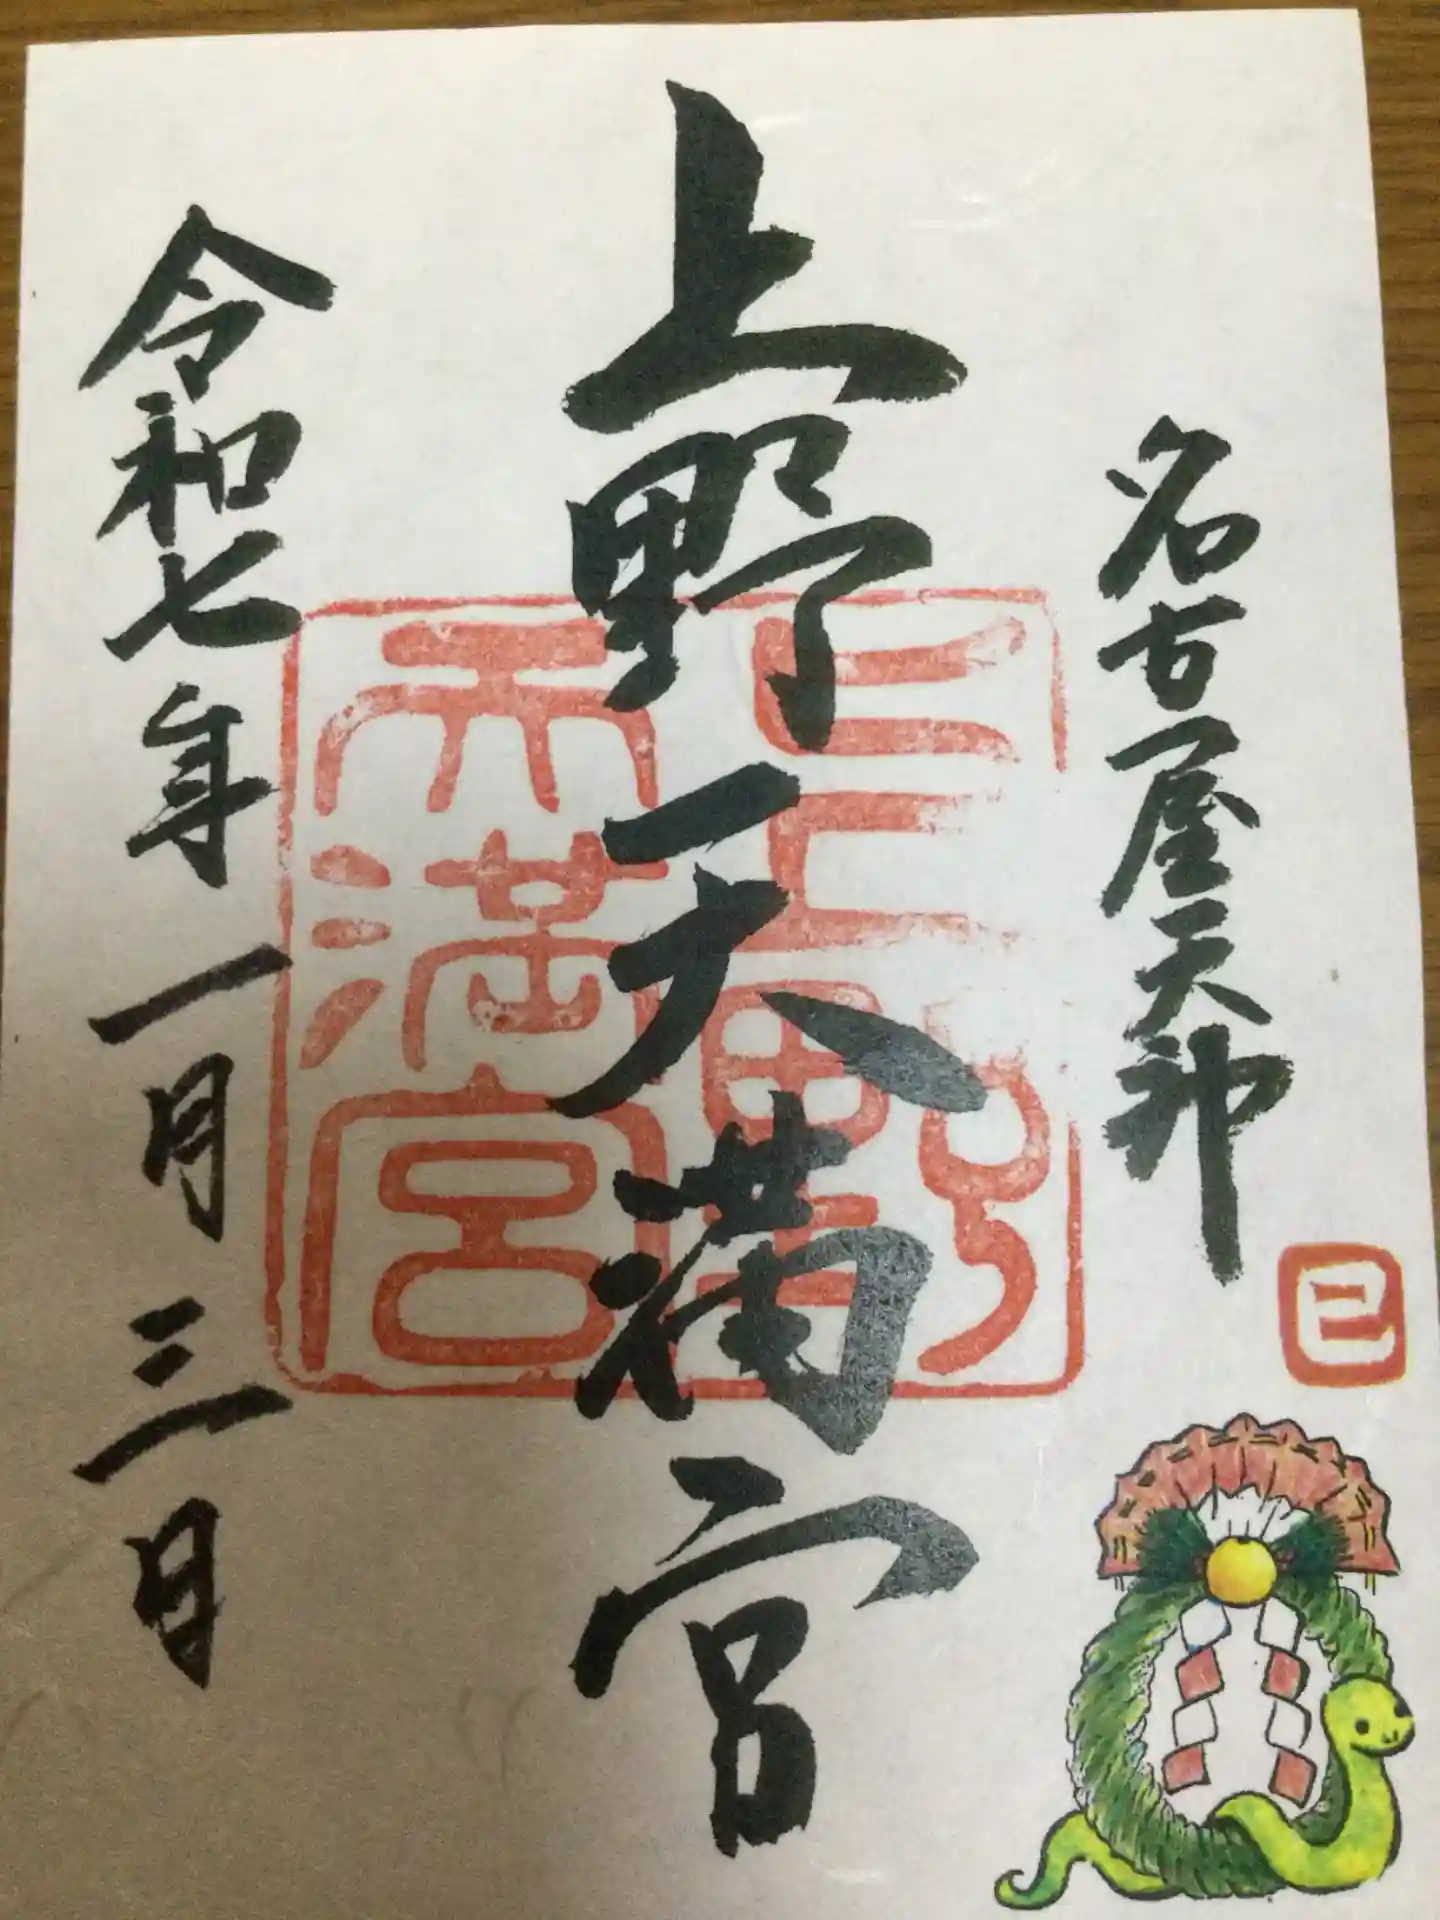 名古屋天神
巳
上野天満宮
上野
天満宮
令和七年一月三日